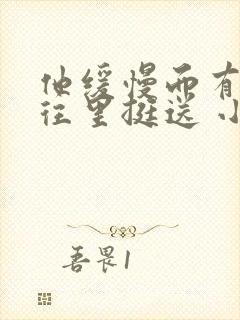 他缓慢而有
往里挺送 小
吾畏1